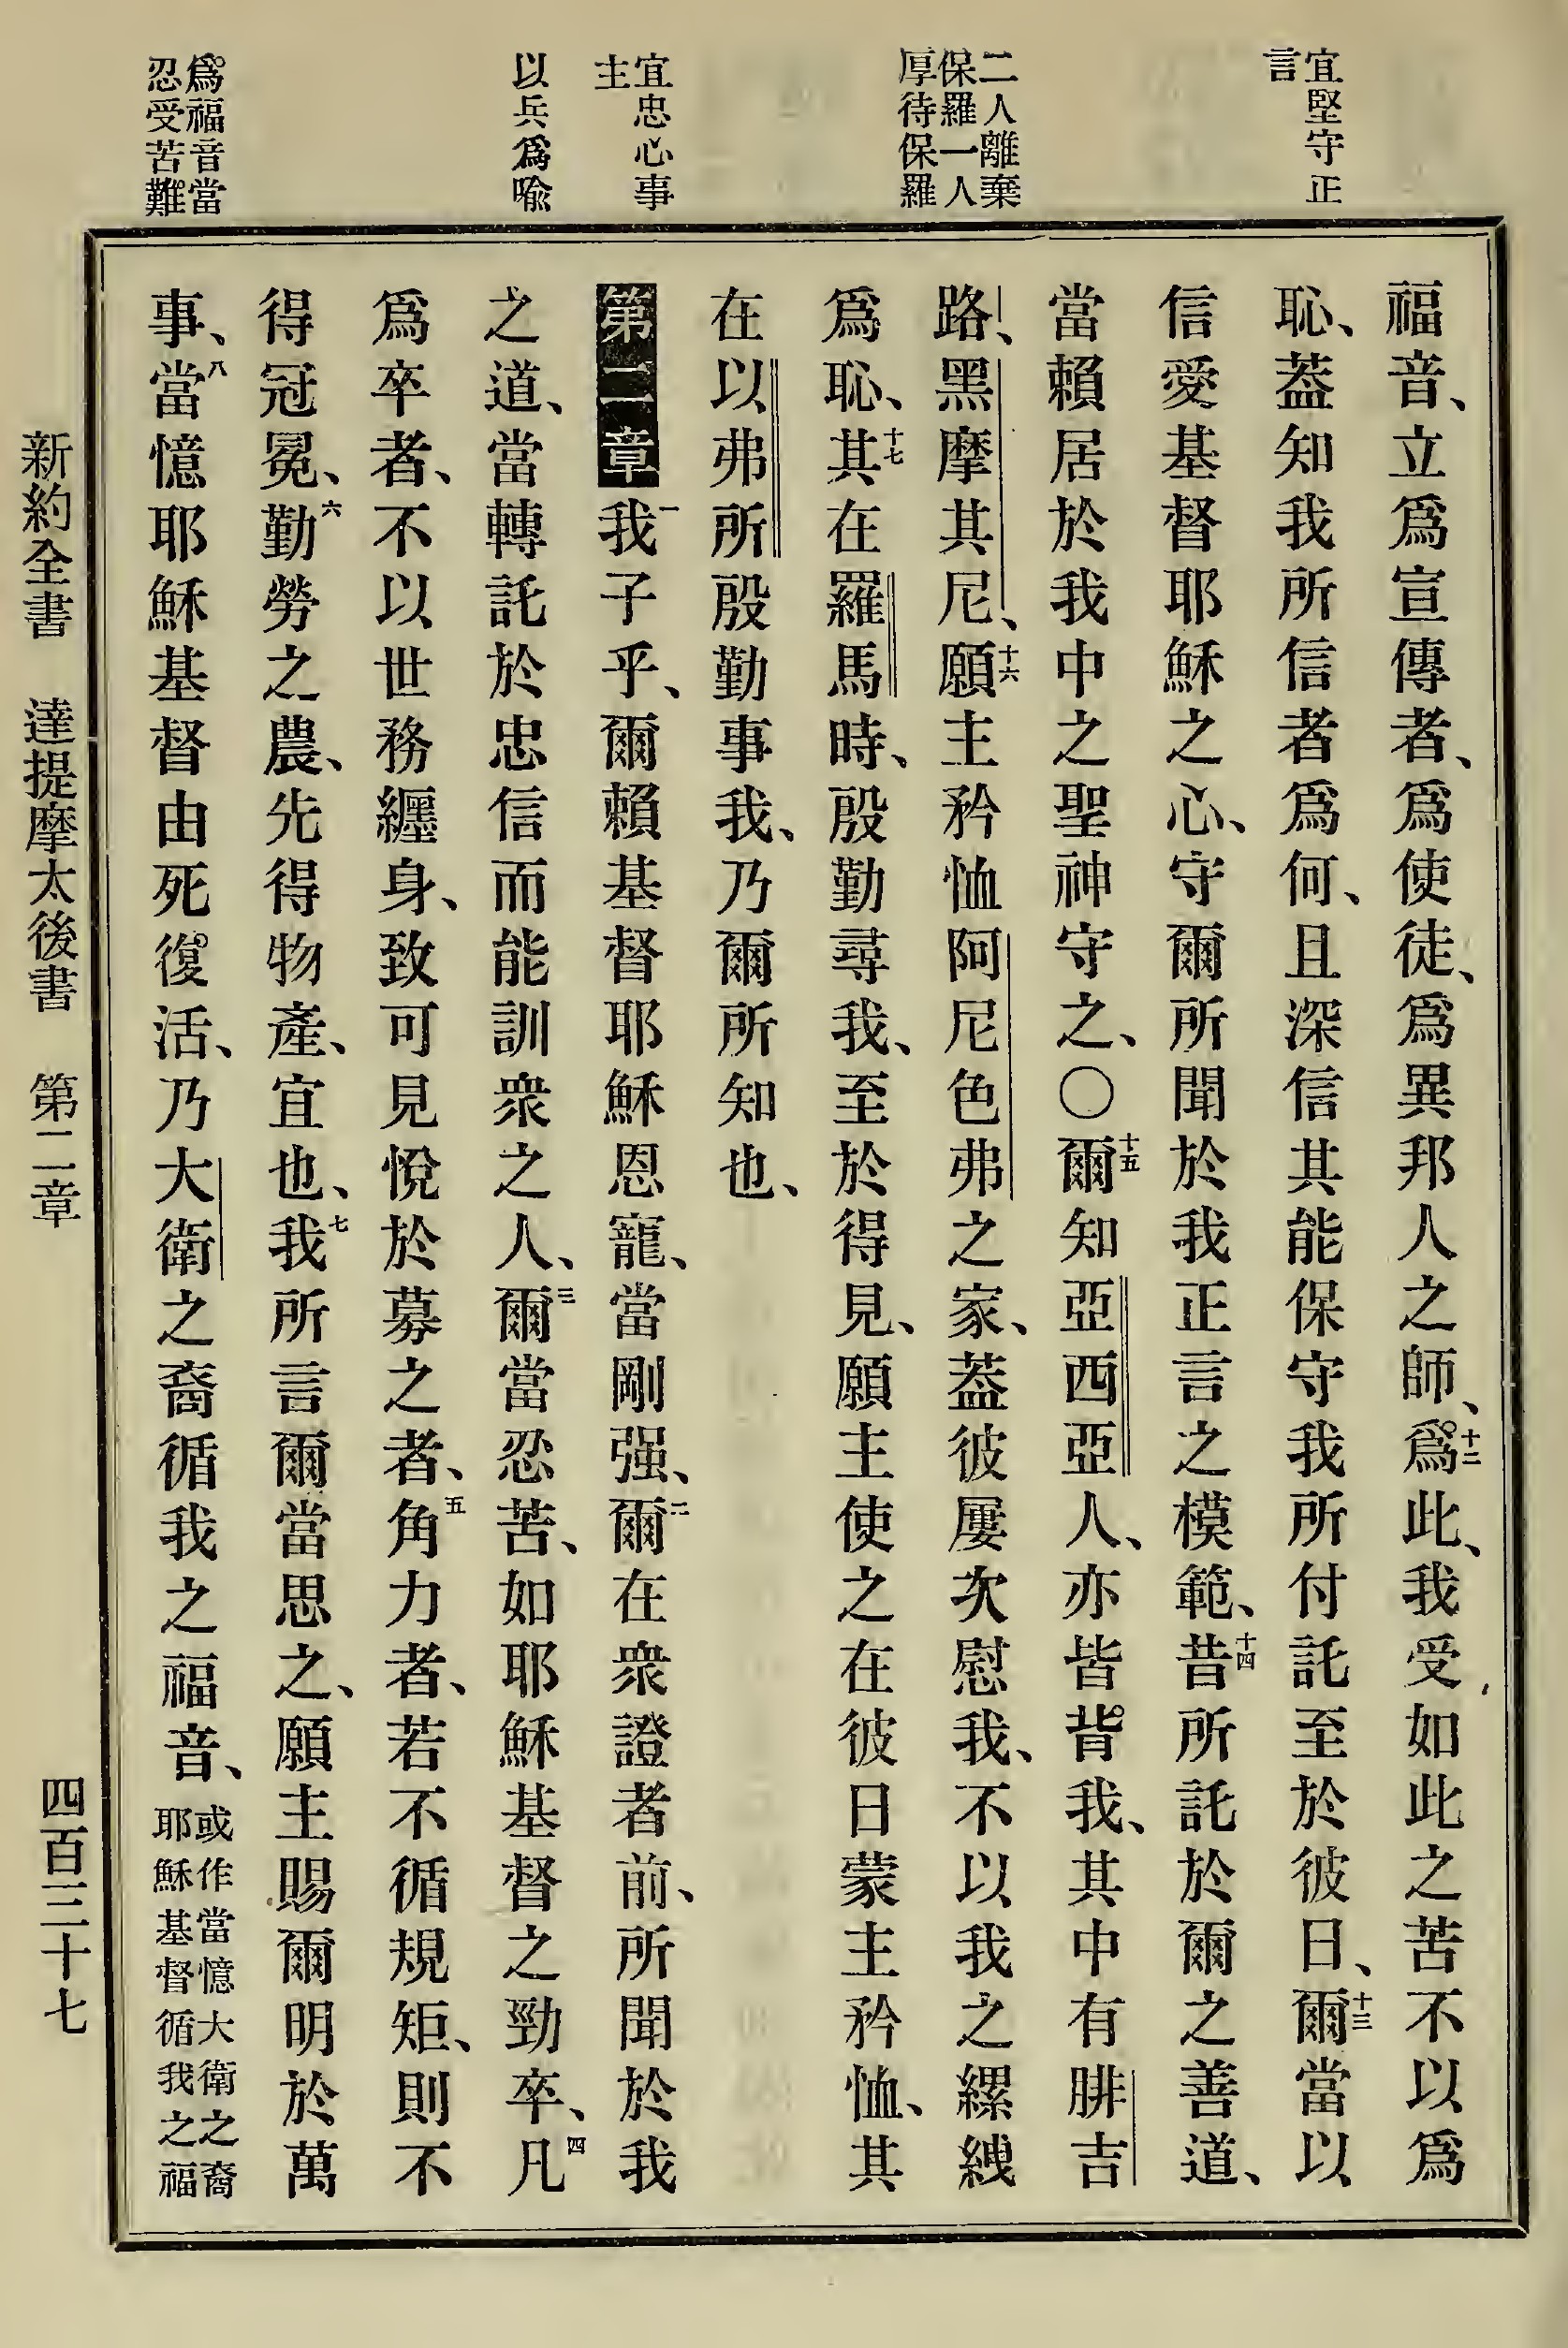 宜堅守正
言
二人離棄
保羅一人
厚待保羅
宜忠心事
主
以兵爲喩
爲福音當
忍受苦難
福音、立爲宣傳者、爲使徒、爲異邦人之師、十二爲此、我受如此之苦不以爲
恥、葢知我所信者爲何、且深信其能保守我所付託至於彼日、十三爾當以
信愛基督耶穌之心、守爾所聞於我正言之模範、十四昔所託於爾之善道、
當賴居於我中之聖神守之、〇十五爾知亞西亞人、亦皆背我、其中有腓吉
路、黑摩其尼、十六願主矜恤阿尼色弗之家、葢彼屢次慰我、不以我之縲絏
爲恥、十七其在羅馬時、殷勤尋我、至於得見、願主使之在彼日蒙主矜恤、其
在以弗所殷勤事我、乃爾所知也、
第二章一我子乎、爾賴基督耶穌恩寵、當剛强、二爾在衆證者前、所聞於我
之道、當轉託於忠信而能訓衆之人、三爾當忍苦、如耶穌基督之勁卒、四凡
爲卒者、不以世務纏身、致可見悅於募之者、五角力者、若不循規矩、則不
得冠冕、六勤勞之農、先得物產、宜也、七我所言爾當思之、願主賜爾明於萬
事、八當憶耶穌基督由死復活、乃大衛之裔循我之福音、或作當憶大衛之裔
耶穌基督循我之福
新約全書 達提摩太後書 第二章 四百三十七